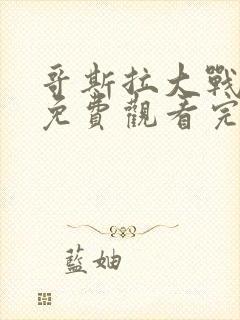 哥斯拉大戰
免費觀看完
藍妯